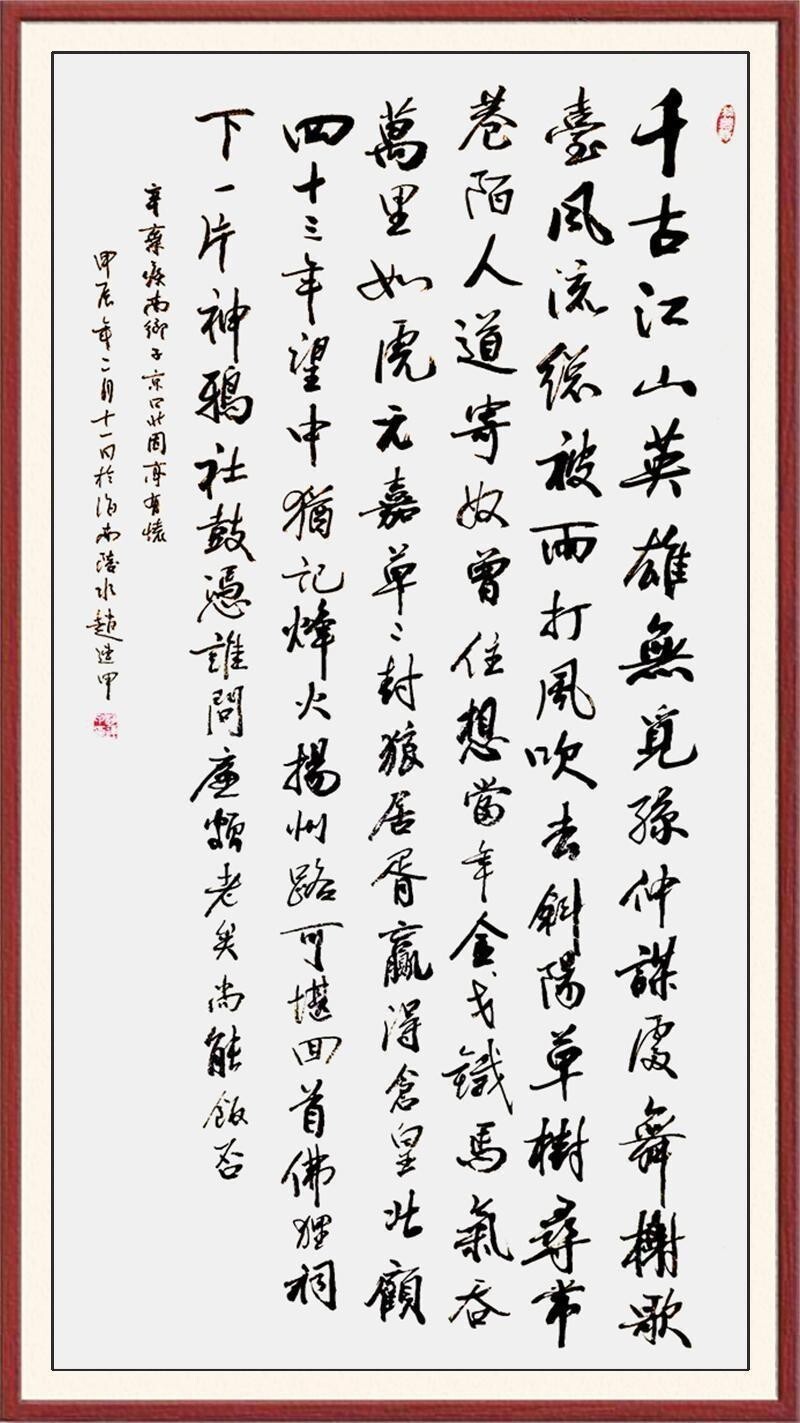 千古江山英雄無覓孫仲謀處舞榭歌
臺風流總被雨打風吹去斜陽草樹尋常
巷陌人道寄奴曾住想當年金戈鐵馬氣吞
萬里如虎元嘉草々封狼居胥贏得倉皇北顧
四十三年望中猶記烽火揚州路可堪回首佛狸祠
下一片神鴉社鼓憑誰問廉頗老矣尚能飯否
辛棄疾南鄉子京口北固亭有懷
甲辰年二月十一日於海南陵水趙甲